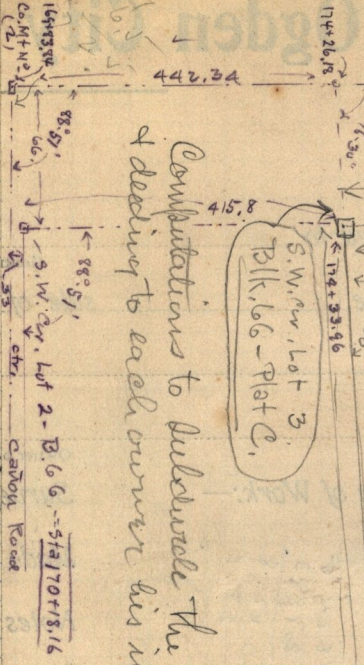 Ogden City
174+26.18
6.30
442.34
169+83.84
Co. Mt. No
(2)
66.
88° 51'
88° 51'
415.8
174+33.96
S.W. Cor. Lot 3
Blk. 66 - Plat C.
Computations to Subdivide the
& deeding to each owner his
S.W. Cor. Lot 2 - B 66 = Sta 170+18.16
33
ctr.
cañon Road
of Work: